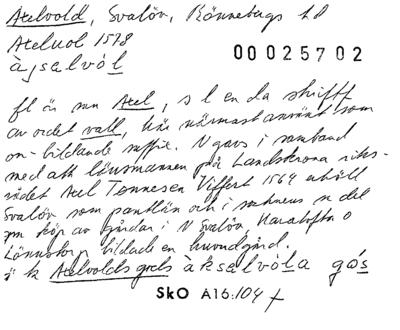 Axelvold, Svalöv, Rönnebergs hd
Axeluol 1578
000 25702
àksalvòl
fl är mn Axel, s l en da skrift
av ordet vall, här närmast använt som
on-bildande suffix. N gavs i samband
med att länsmannen på Landskrona riks-
rådet Axel Tønnesen Viffert 1564 erhöll
Svalöv som pantlän och i
gm köp av gårdar i N Svalöv, Karatofta o
Lönnstorp bildade en huvudgård.
Axelvolds gods àksalvòla gós
SkO A16:104